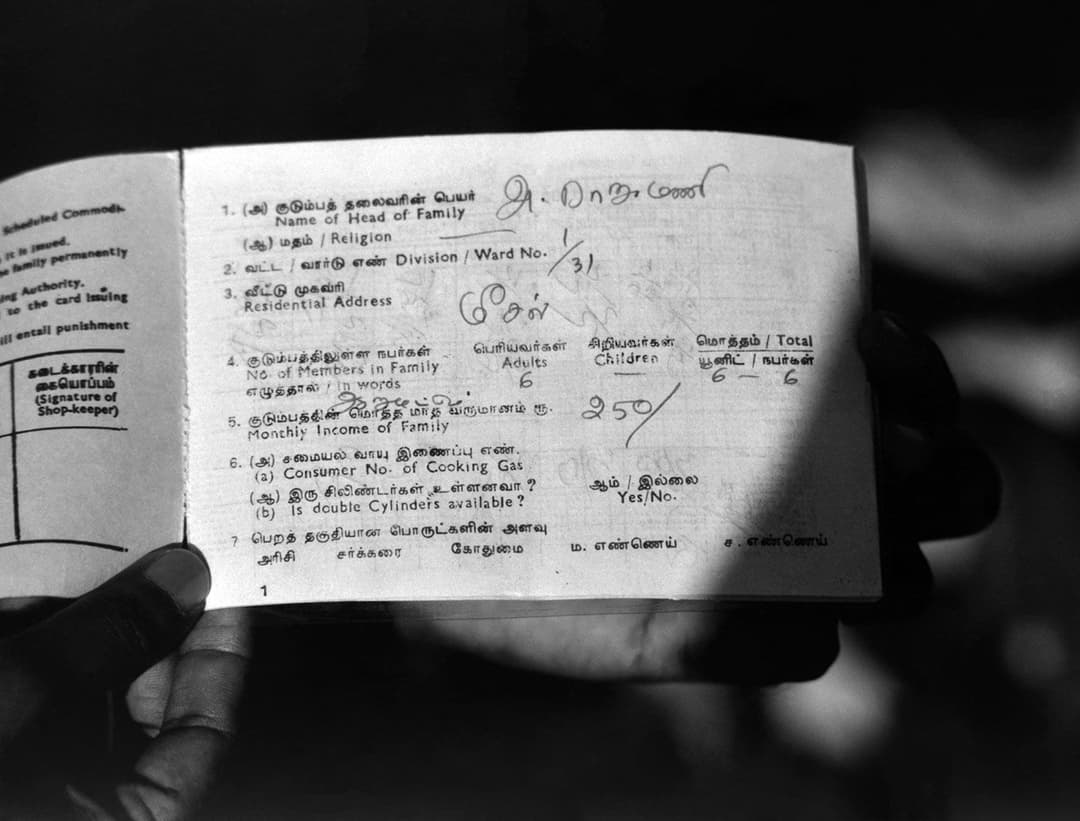 Scheduled Commodi-
it is issued.
e family permanently
ing Authority.
to the card issuing
ill entail punishment
கடைக்காரரின்
கையொப்பம்
(Signature of
Shop-keeper)
1. (அ) குடும்பத் தலைவரின் பெயர்
Name of Head of Family
(ஆ) மதம் / Religion
2. வட்ட / வார்டு எண் Division / Ward No. 1/31
3. வீட்டு முகவரி
Residential Address
4. குடும்பத்திலுள்ள நபர்கள் பெரியவர்கள் சிறியவர்கள் மொத்தம் / Total
No. of Members in Family Adults Children யூனிட் / நபர்கள்
எழுத்தால் / in words 6 — 6 — 6
5. குடும்பத்தின் மொத்த மாத வருமானம் ரூ. 250/
Monthly Income of Family
6. (அ) சமையல் வாயு இணைப்பு எண்.
(a) Consumer No. of Cooking Gas
(ஆ) இரு சிலிண்டர்கள் உள்ளனவா ? ஆம் / இல்லை
(b) Is double Cylinders available ? Yes/No.
7 பெறத் தகுதியான பொருட்களின் அளவு
அரிசி சர்க்கரை கோதுமை ம. எண்ணெய் ச. எண்ணெய்
1